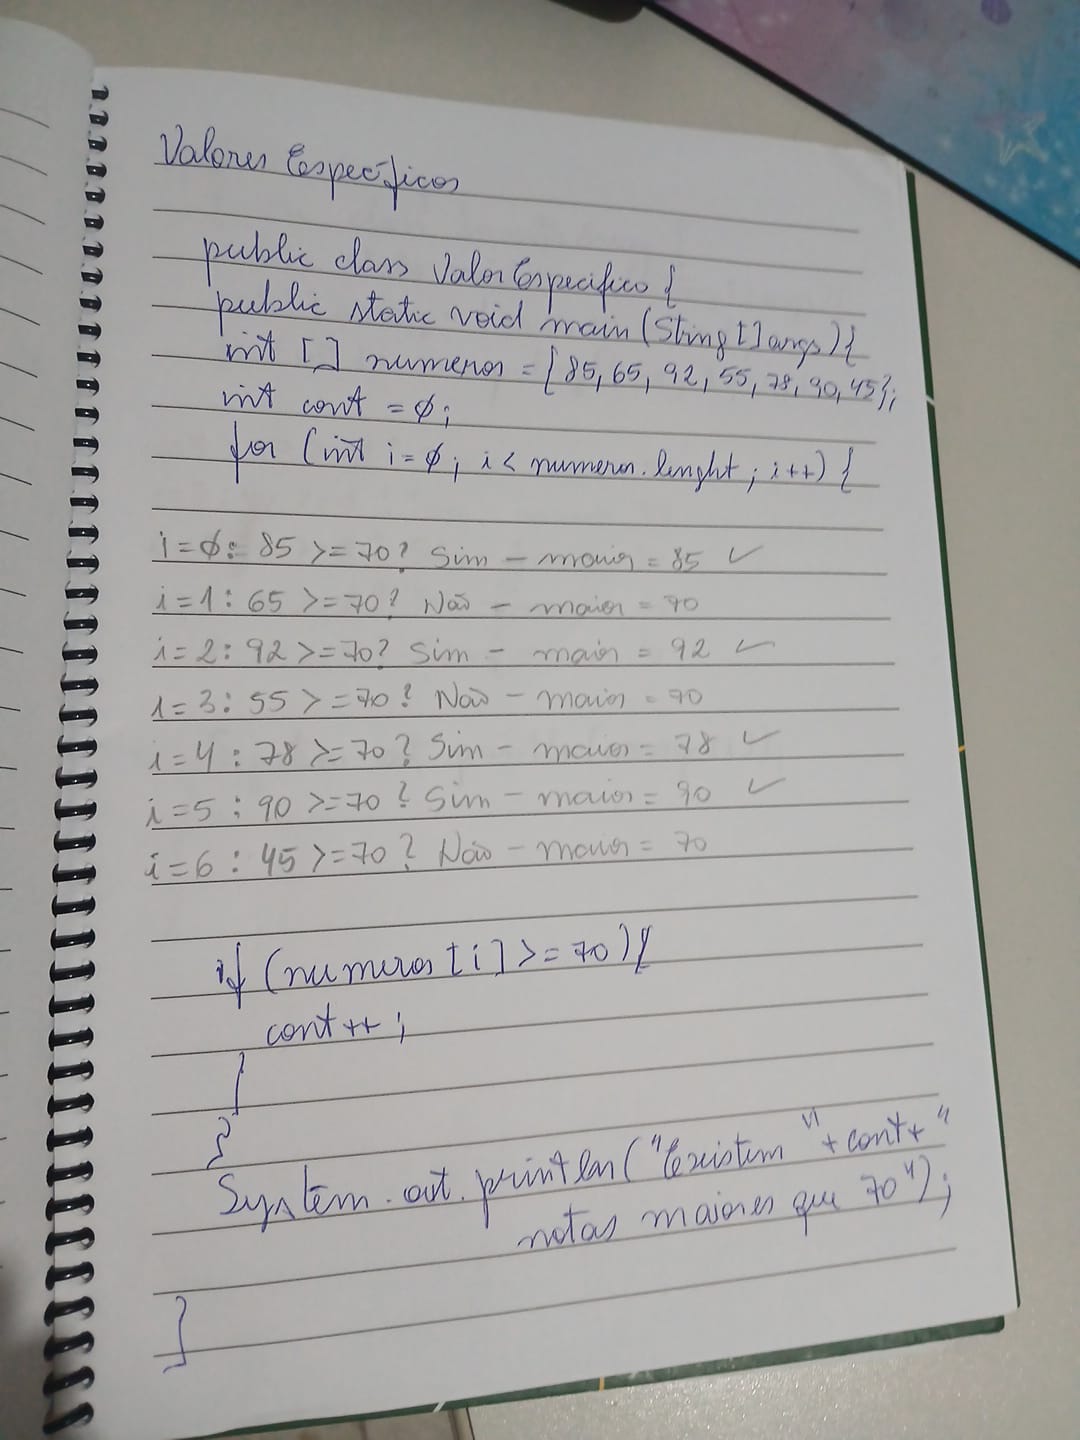 Valores Específicos
public class ValorEspecifico {
public static void main (String []args){
int [] numeros = {85, 65, 92, 55, 78, 90, 45};
int cont = 0;
for (int i = 0; i < numeros.lenght; i++) {
i = 0: 85 >= 70? Sim - maior = 85 ✓
i = 1: 65 >= 70? Não - maior = 70
i = 2: 92 >= 70? Sim - maior = 92 ✓
i = 3: 55 >= 70? Não - maior = 70
i = 4: 78 >= 70? Sim - maior = 78 ✓
i = 5: 90 >= 70? Sim - maior = 90 ✓
i = 6: 45 >= 70? Não - maior = 70
if (numeros [i] >= 70){
cont++;
}
}
System.out.println("Existem " + cont + "
notas maiores que 70");
}